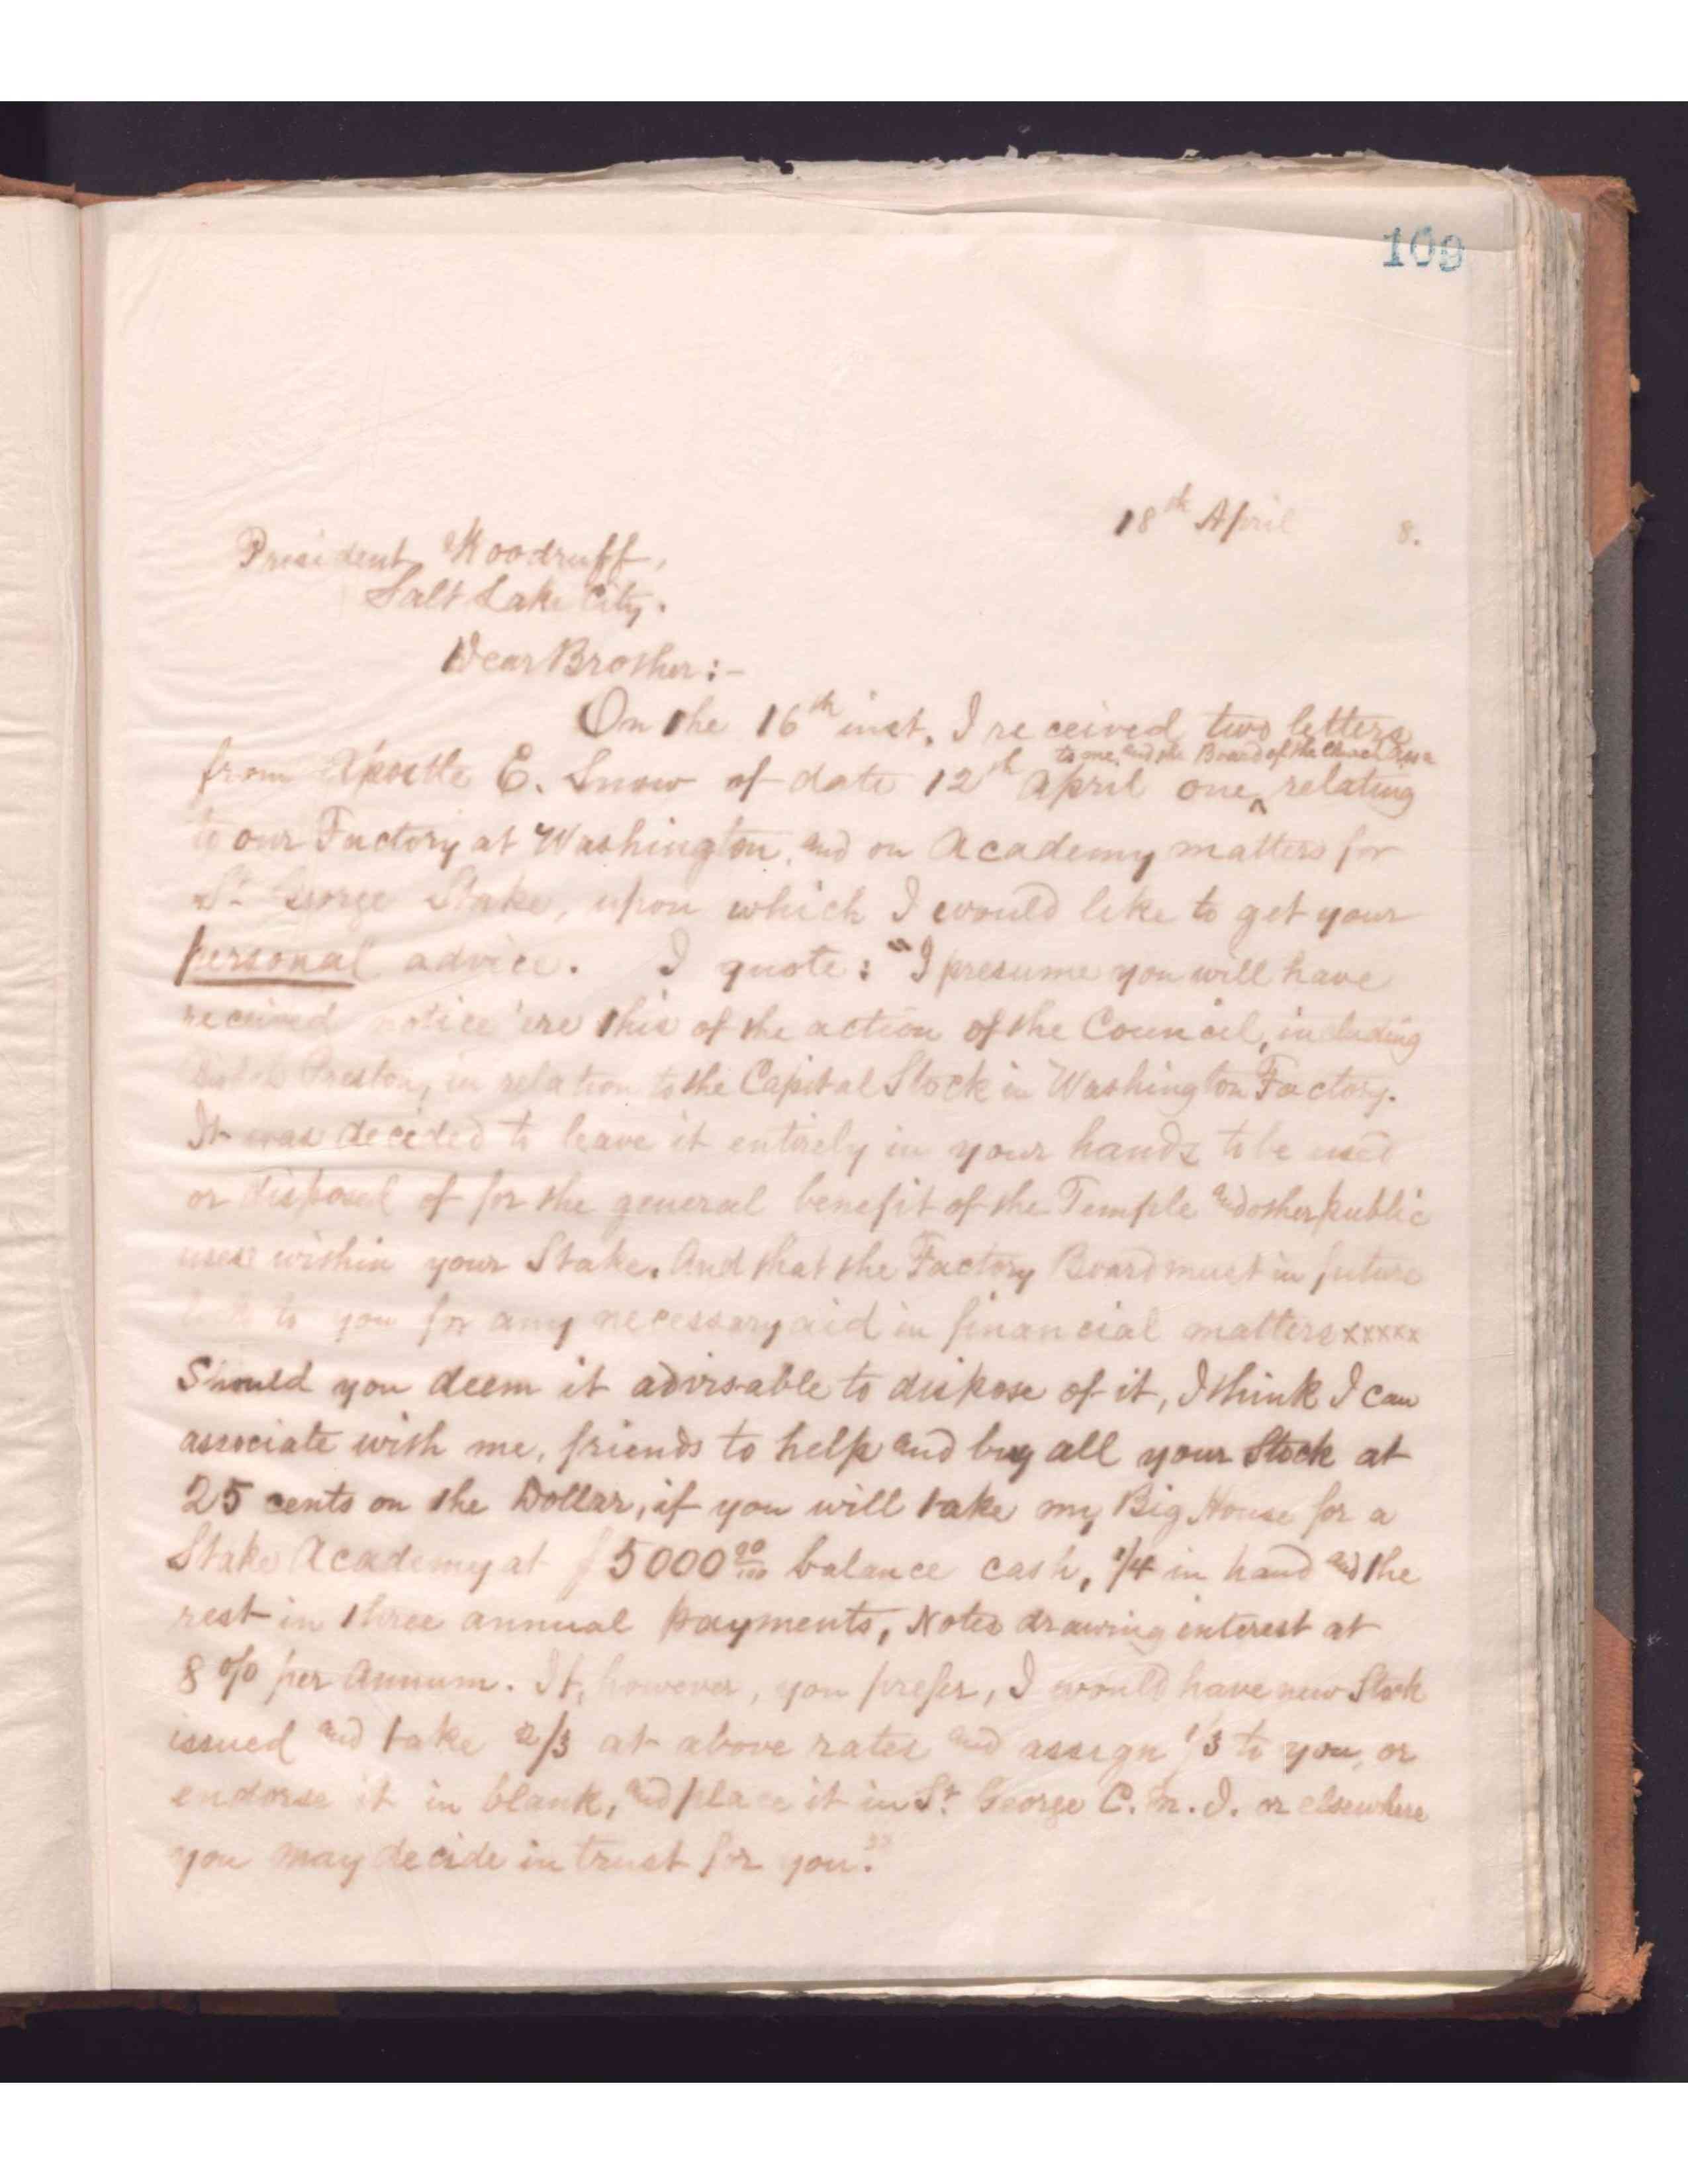 109
18th April 8.
President Woodruff,
Salt Lake City.
Dear Brother:-
On the 16th inst, I received two letters
to one, and the Board of the Church
from Apostle E. Snow of date 12th April one ^ relating
to our Factory at Washington, and on Academy matters for
St. George Stake, upon which I would like to get your
personal advice. I quote: "I presume you will have
received notice 'ere this of the action of the Council, including
Preston, in relation to the Capital Stock in Washington Factory.
It was decided to leave it entirely in your hands to be used
or disposed of for the general benefit of the Temple and other public
uses within your Stake. And that the Factory Board must in future
look to you for any necessary aid in financial matters xxxxx
Should you deem it advisable to dispose of it, I think I can
associate with me, friends to help and buy all your Stock at
25 cents on the Dollar, if you will take my Big House for a
Stake Academy at $5000 00/100 balance cash, 1/4 in hand and the
rest in three annual payments, Notes drawing interest at
8 % per Annum. If, however, you prefer, I would have new Stock
issued and take 2/3 at above rates and assign 1/3 to you, or
endorse it in blank, and place it in St. George C. M. I. or elsewhere
you may decide in trust for you."